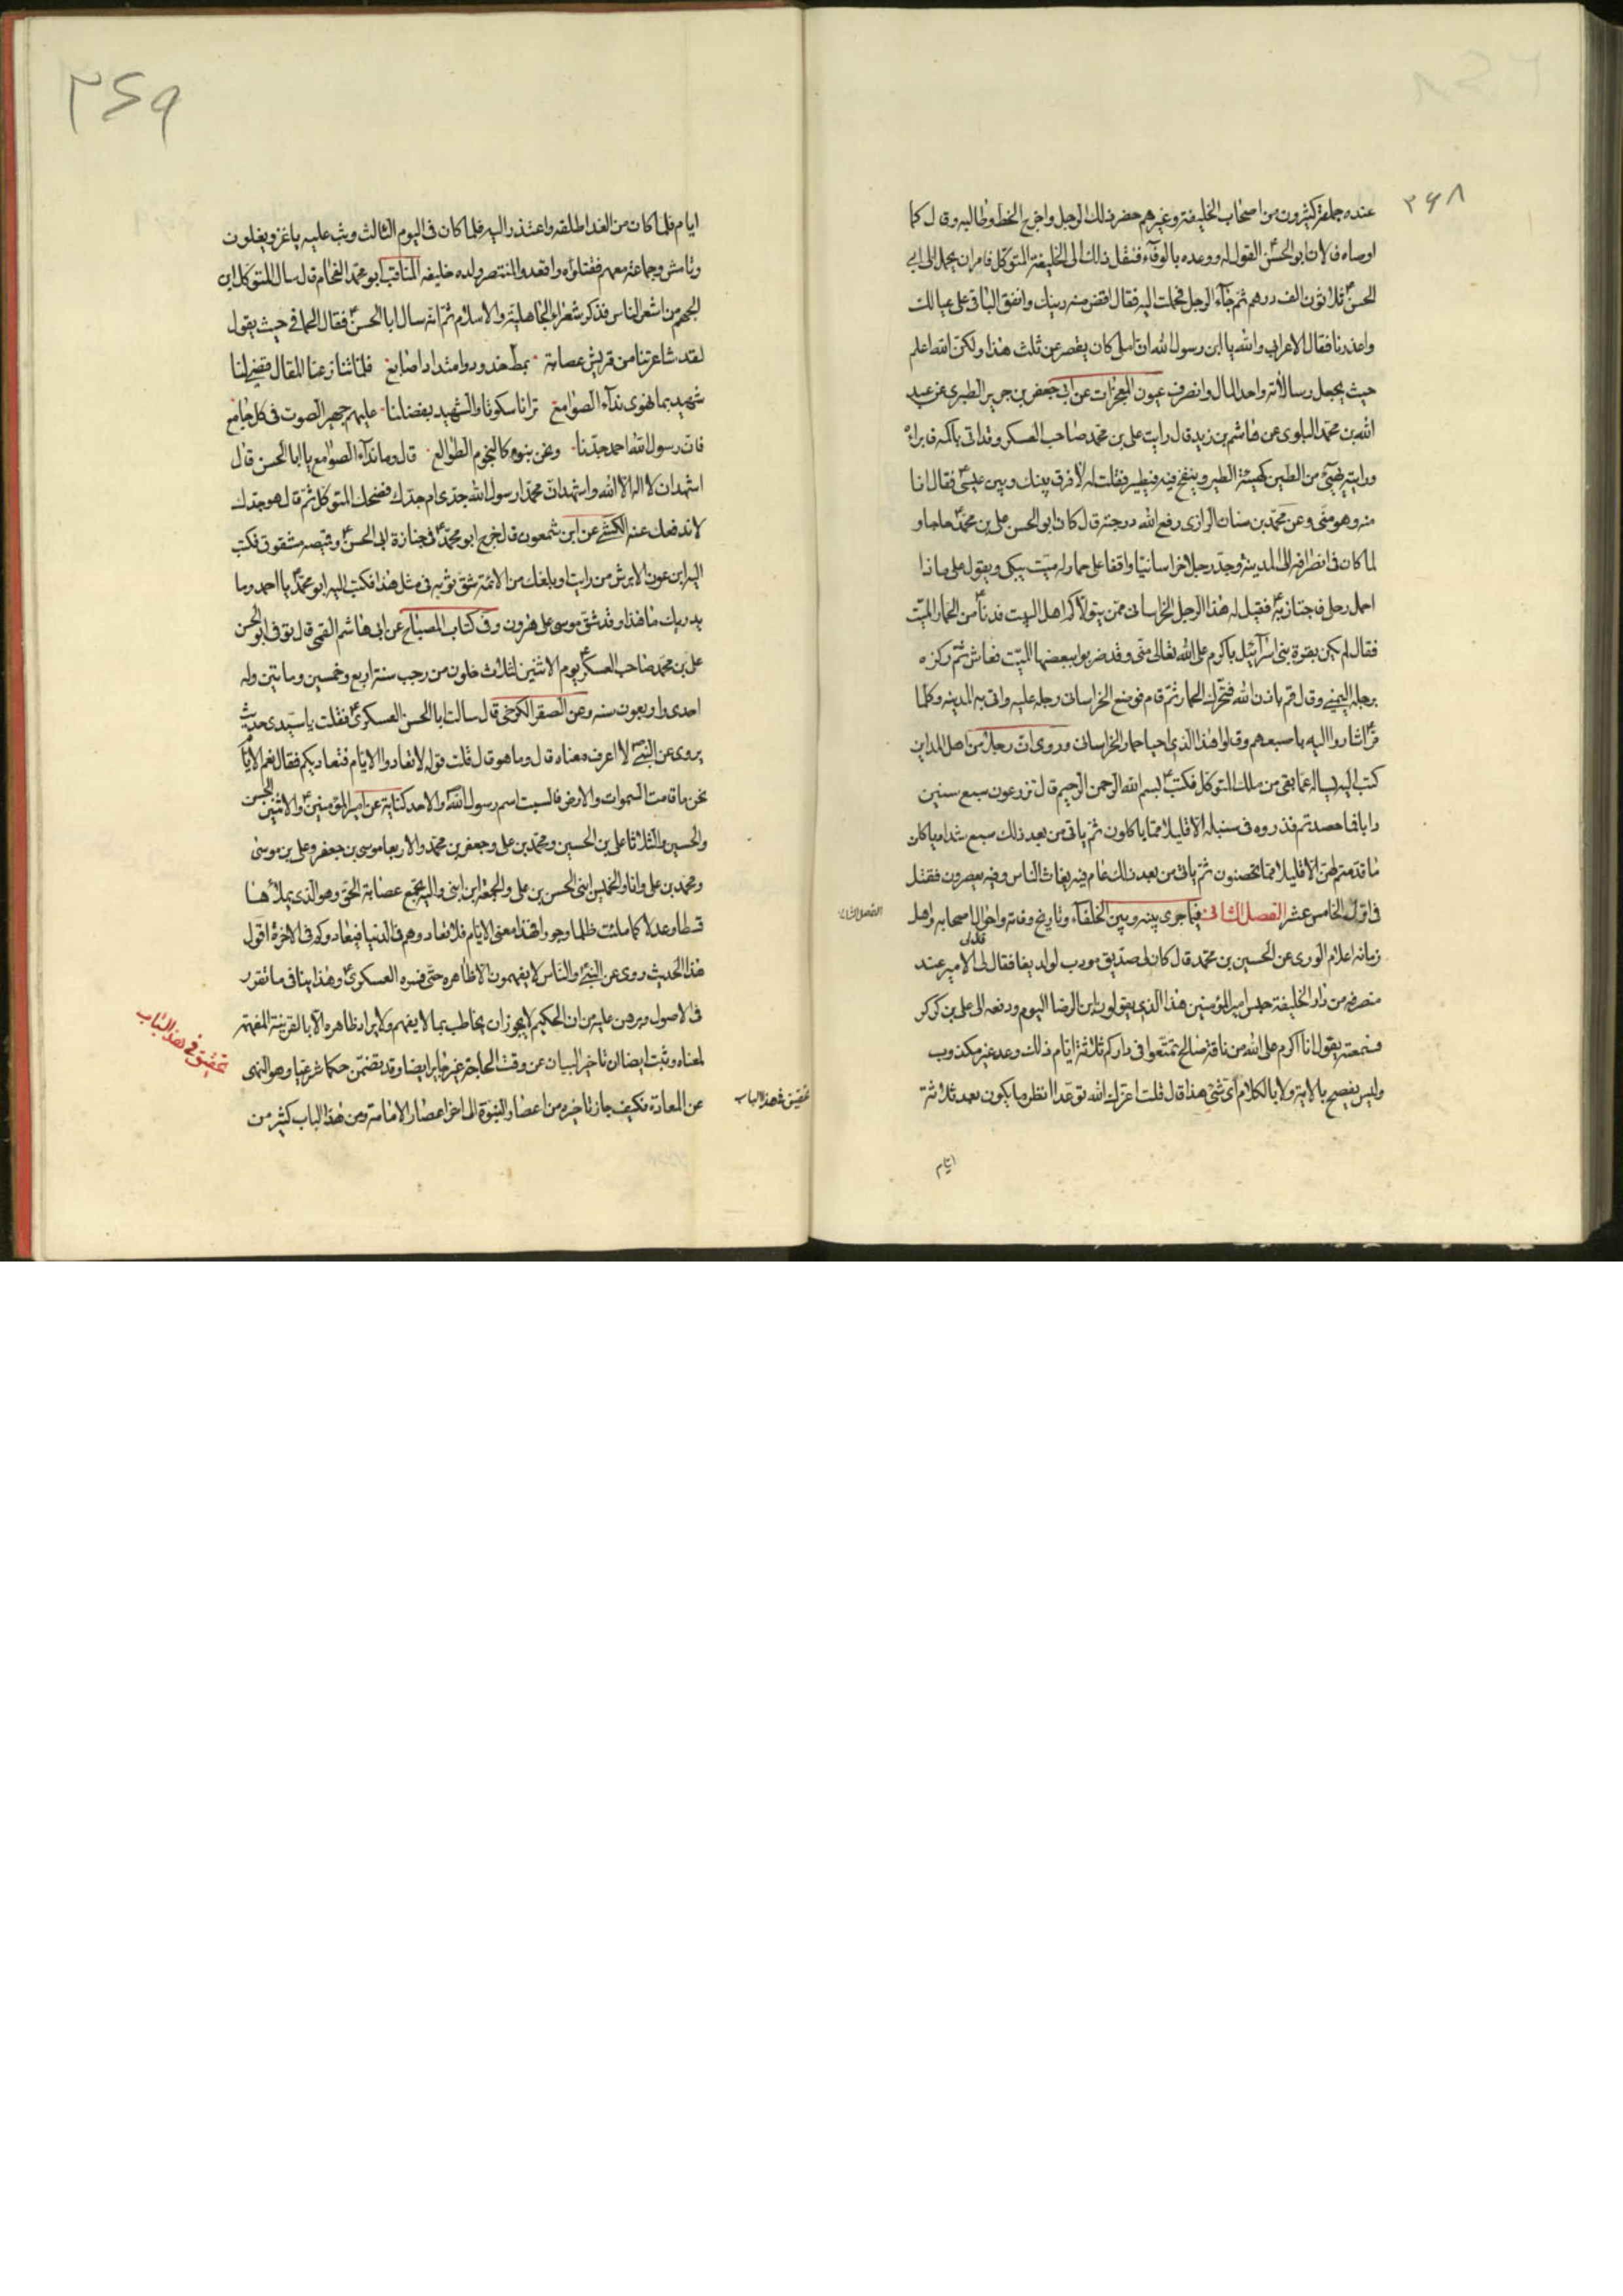 ٣۶٨
عنده جماعة كثيرون من اصحاب الخليفة وغيرهم حضر ذلك الرجل واخرج الخط وطالبه وقال كما
اوصاه فالان ابو الحسن القول له ووعده بالوفاء فنقل ذلك الى الخليفة المتوكل فامر ان يحمل الى ابي
الحسنؑ ثلاثون الف درهم ثم جاء الرجل فحملت اليه فقال اقض منه دينك وانفق الباقي على عيالك
واعذرنا فقال الاعرابي والله يا ابن رسول الله ان املي كان يقصر عن ثلث هذا ولكن الله اعلم
حيث يجعل رسالاته واخذ المال وانصرف عيون المعجزات عن ابي جعفر بن جرير الطبري عن عبد
الله بن محمد البلوى عن هاشم بن زيد قال رايت على بن محمد صاحب العسكر وقد اتى باكمه فابراه
ورايته يهيّئ من الطين كهيئة الطير وينفخ فيه فيطير فقلت له لا فرق بينك وبين عيسىؑ فقال انا
منه وهو منى وعن محمد بن سنان الرازى رفع الله درجته قال كان ابو الحسن على بن محمدؑ حاجا و
لما كان فى انصرافه الى المدينة وجد رجلا خراسانيا واقفا على حمار له ميت يبكى ويقول على ماذا
احمل رحلى فاجتاز بهؑ فقيل له هذا الرجل الخراسانى ممن يتولاكم اهل البيت فدناؑ من الحمار الميّت
فقال لم تكن بقرة بنى اسرائيل باكرم على الله تعالى منى وقد ضربوا ببعضها الميّت فعاش ثم وكزه
برجله اليمنى وقال قم باذن الله فتحرك الحمار ثم قام فوضع الخراسانى رحله عليه واتى به المدينه وكلما
مرّؑ اشاروا اليه باصبعهم وقالوا هذا الذى احيا حمار الخراسانى وروى ان رجلا من اهل المداين
كتب اليه يساله عما بقى من ملك المتوكل فكتبؑ بسم الله الرحمن الرحيم قال تزرعون سبع سنين
دابا فما حصدتم فذروه فى سنبله الا قليلا مما ياكلون ثم ياتى من بعد ذلك سبع شداد ياكلن
ما قدمتم لهنّ الا قليلا مما تحصنون ثم ياتى من بعد ذلك عام فيه يغاث الناس وفيه يعصرون فقتل
فى اول الخامس عشر الفصل الثانى فيما جرى بينه وبين الخلفاء وتاريخ وفاته واحوال اصحابه واهل
الفصل الثانى
زمانه اعلام الورى عن الحسين بن محمد قال كان لى صديق مودب لولد بغا فقال لى الامير عند
منصرفه من دار الخليفة حبس امير المؤمنين هذا الذى يقولون ابن الرضا اليوم ودفعه الى على بن كركر
فسمعته يقول انا اكرم على الله من ناقة صالح تمتّعوا فى داركم ثلاثة ايام ذلك وعد غير مكذوب
وليس يفصح بالاية ولا بالكلام اىّ شئ هذا قال قلت اعزك الله توعّد انظر ما يكون بعد ثلاثة
ايام
٣۶٩
ايام فلما كان من الغد اطلقه واعتذر اليه فلما كان فى اليوم الثالث وثب عليه ياغز ويغلون
وتامش وجماعة معهم فقتلوه واقعدوا المنتصر ولده خليفه المناقب ابو محمد الفحام قال سال المتوكل ابن
الجهم من اشعر الناس فذكر شعراء الجاهلية والاسلام ثم انه سال ابا الحسنؑ فقال الحمانى حيث يقول
لقد شاعرتنا من قريش عصابة بمط خدود وامتداد اصابع فلما تنازعنا المقال قضى لنا
شهيد بما نهوى نداء الصوامع ترانا سكوتا والشهيد بفضلنا عليهم جهير الصوت فى كل جامع
فان رسول الله احمد جدّنا ونحن بنوه كالنجوم الطوالع قال وما نداء الصوامع يا ابا الحسن قال
اشهد ان لا اله الا الله واشهد ان محمدا رسول الله جدى ام جدك فضحك المتوكل ثم قال هو جدك
لا ندفعك عنه الكشى عن ابن شمعون قال خرج ابو محمدؑ فى جنازة ابى الحسنؑ وقميصه مشقوق فكتب
اليه ابن عون الابرش من رايت او بلغك من الائمة شق ثوبه فى مثل هذا فكتب اليه ابو محمدؑ يا احمق وما
يدريك ما هذا وقد شق موسى على هرون وفى كتاب المصباح عن ابى هاشم القمى قال توفى ابو الحسن
على بن محمد صاحب العسكرؑ يوم الاثنين لثلاث خلون من رجب سنة اربع وخمسين وماتين وله
احدى واربعون سنه وعن الصقر الكرخى قال سالت ابا الحسن العسكرىؑ فقلت يا سيدى حديث
يروى عن النبىؐ لا اعرف معناه قال وما هو قال قلت قوله لا تعادوا الايام فتعاديكم فقال نعم الايام
نحن ما قامت السموات والارض فالسبت اسم رسول الله والاحد كناية عن امير المؤمنينؑ والاثنين الحسن
والحسين والثلاثا على بن الحسين ومحمد بن على وجعفر بن محمد والاربعا موسى بن جعفر وعلى بن موسى
ومحمد بن على وانا والخميس ابنى الحسن بن على والجمعة ابن ابنى واليه تجتمع عصابة الحق وهو الذى يملأها
قسطا وعدلا كما ملئت ظلما وجورا فهذا معنى الايام فلا تعادوهم فى الدنيا فيعادوكم فى الاخرة اقول
هذا الحديث روى عن النبىؐ والناس لا يفهمون الا ظاهره حتى فسره العسكرىؑ وهذا ينافى ما تقرر
فى الاصول وبرهن عليه من ان الحكيم لا يجوز ان يخاطب بما لا يفهم ولا يراد ظاهره الا بالقرينة المفهمة
لمعناه وثبت ايضا ان تاخير البيان عن وقت الحاجة غير جايز ايضا وقد يتضمّن حكما شرعيا وهو النهى
عن المعاداة فكيف جاز تاخيره من اعصار النبوة الى اخر اعصار الامامة ومن هذا الباب كثير من
تحقيق فى هذا الباب
تحقيق فى هذا الباب